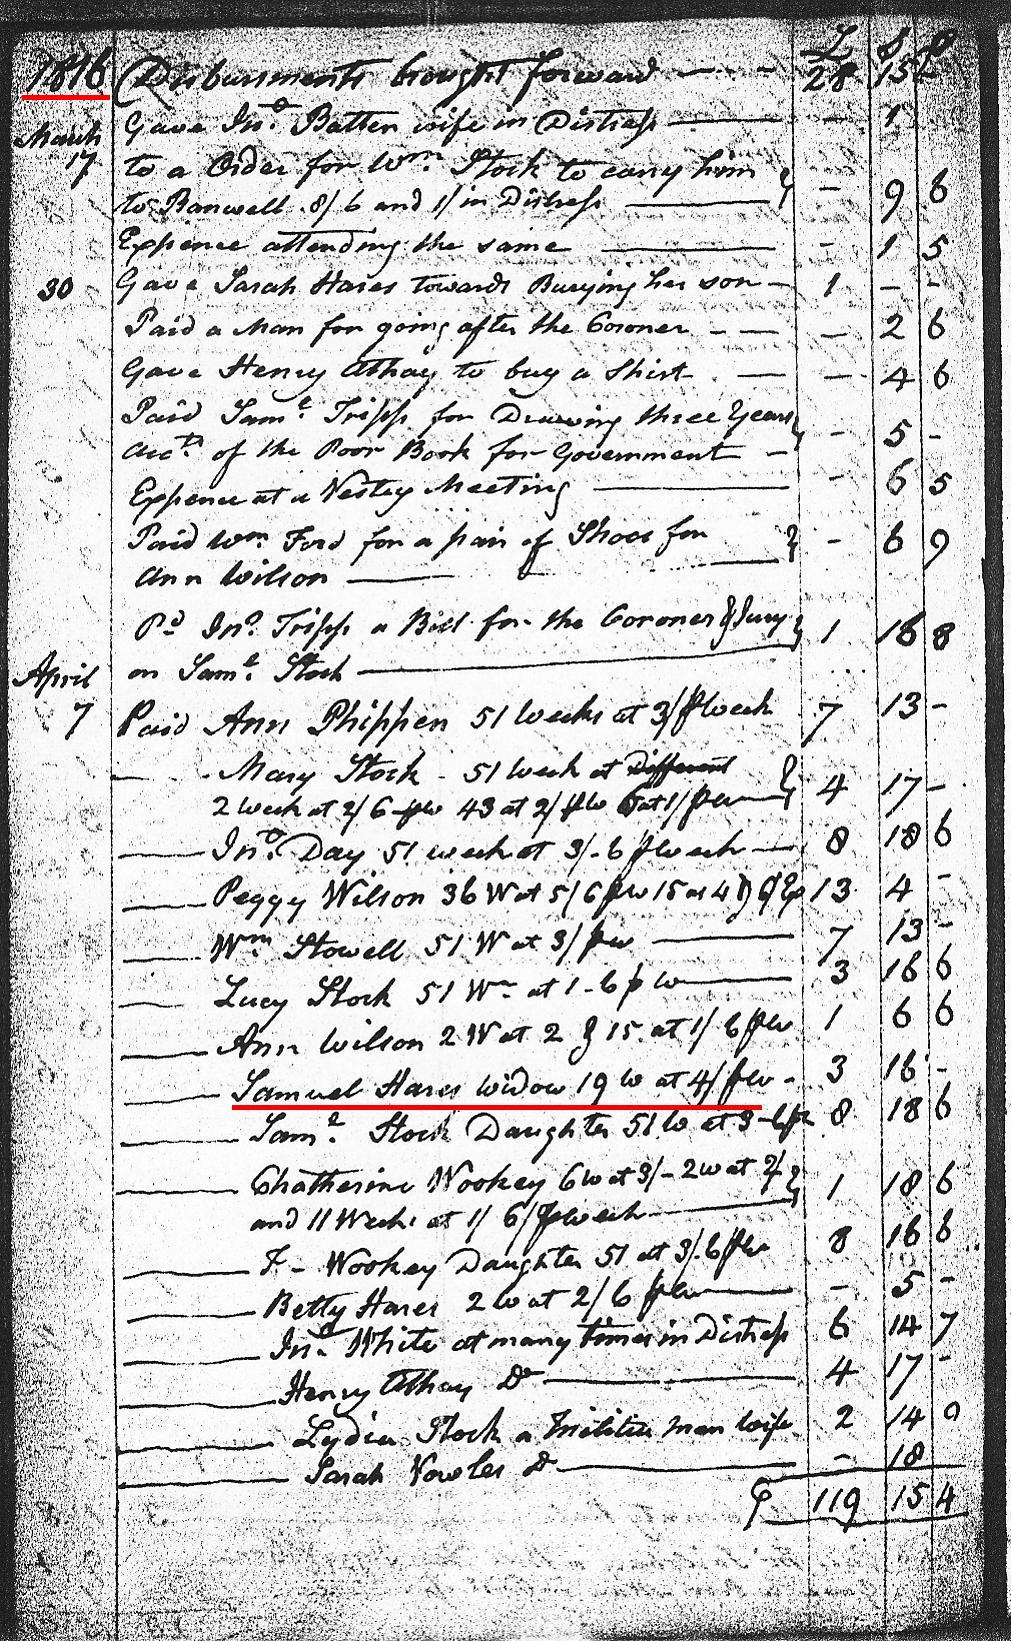 £ s p
1816 Disbursments brought forward — - - 28 15
March Gave Jno. Batten wife in Distress — - 1
17 to a Order for Wm. Stock to carry him
to Banwell 8/6 and 1/ in Distress — - 9 6
Expence attending the same — - 1 5
30 Gave Sarah Hares towards Burying her son - 1 - -
Paid a Man for going after the Coroner - — - 2 6
Gave Henry Athay to buy a Shirt — - 4 6
Paid Saml. Tripp for Drawing three Years
Acct. of the Poor Book for Government - - 5 -
Expence at a Vestry Meeting — - 6 5
Paid Wm. Ford for a pair of Shoes for - 6 9
Ann Wilson —
Pd Jno. Tripp a Bill for the Coroner & Jury 1 16 8
April on Saml. Stock —
7 Paid Ann Phippen 51 weeks at 3/ p week 7 13 -
— Mary Stock - 51 week at Different
2 week at 2/6 pw 43 at 2/ pw 6 at 1/ pw — 4 17 -
— Jno. Day 51 week at 3/-6 p week — 8 18 6
— Peggy Wilson 36 W at 5/6 pw 15 at 4 13 4 -
— Wm Stowell 51 W at 3/ pw — 7 13 -
— Lucy Stock 51 W at 1-6 p w — 3 16 6
— Ann Wilson 2 W at 2 & 15 at 1/6 pw 1 6 6
— Samuel Hares Widow 19 W at 4/ pw - 3 16 -
— Saml. Stock Daughter 51 W at 3-6 p 8 18 6
— Chatherine Wookey 6 w at 3/- 2 w at 2/
and 11 Weeks at 1/6/ p week — 1 18 6
— F - Wookey Daughter 51 at 3/.6 pw 8 16 6
— Betty Hares 2 W at 2/6 pw — - 5 -
— Jno. White at many times in Distress 6 14 7
— Henry Athay Do — 4 17 -
— Lydia Stock a Militia man wife 2 14 0
— Sarah Vowles Do — - 18
119 15 4